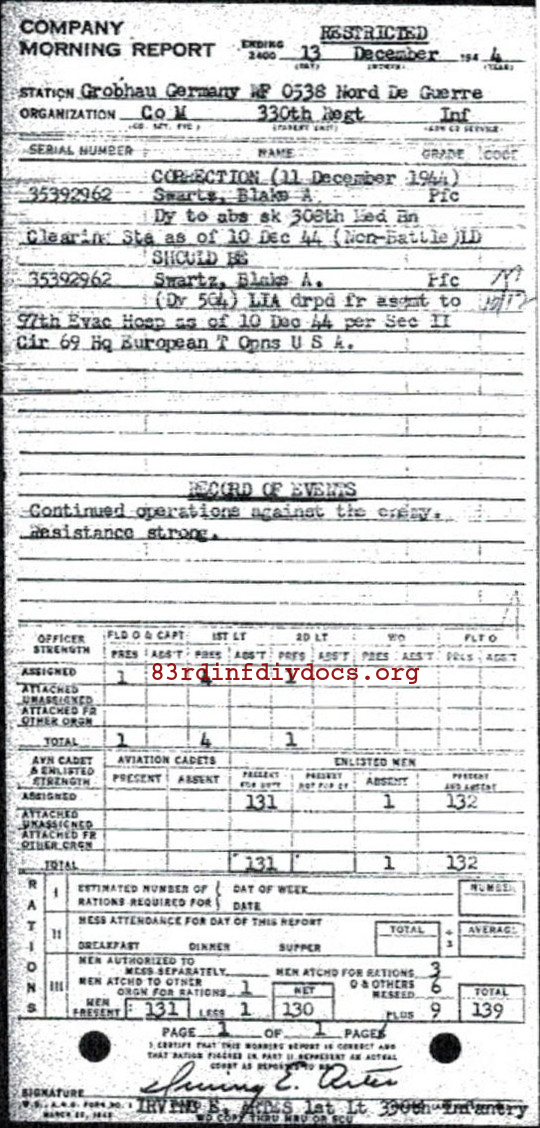 COMPANY
MORNING REPORT
ENDING 2400
RESTRICTED
13 December 194 4
(DAY) (MONTH) (YEAR)
STATION Grobhau Germany WF 0538 Nord De Guerre
ORGANIZATION Co M 330th Regt Inf
SERIAL NUMBER NAME GRADE CODE
CORRECTION (11 December 1944)
35392962 Swartz, Blake A. Pfc
Dy to abs sk 308th Med Bn
Clearing Sta as of 10 Dec 44 (Non-Battle)LD
SHOULD BE
35392962 Swartz, Blake A. Pfc
(Dy 504) LIA drpd fr asgmt to
97th Evac Hosp as of 10 Dec 44 per Sec II
Cir 69 Hq European T Opns U S A.
RECORD OF EVENTS
Continued operations against the enemy.
Resistance strong.
OFFICER STRENGTH FLD O & CAPT 1ST LT 2D LT WO FLT O
PRES ABS'T PRES ABS'T PRES ABS'T PRES ABS'T PRES ABS'T
83rdinfdivdocs.org
ASSIGNED 1 4 1
ATTACHED UNASSIGNED
ATTACHED FR OTHER ORGN
TOTAL 1 4 1
AVN CADET & ENLISTED STRENGTH AVIATION CADETS ENLISTED MEN
PRESENT ABSENT PRESENT FOR DUTY PRESENT NOT FOR DY ABSENT PRESENT AND ABSENT
ASSIGNED 131 1 132
ATTACHED UNASSIGNED
ATTACHED FR OTHER ORGN
TOTAL 131 1 132
RATIONS
I ESTIMATED NUMBER OF RATIONS REQUIRED FOR { DAY OF WEEK DATE NUMBER
II MESS ATTENDANCE FOR DAY OF THIS REPORT
BREAKFAST DINNER SUPPER TOTAL ÷ 3 AVERAGE
III MEN AUTHORIZED TO MESS SEPARATELY MEN ATCHD FOR RATIONS 3
MEN ATCHD TO OTHER ORGN FOR RATIONS 1 NET O & OTHERS MESSED 6 TOTAL
MEN PRESENT 131 LESS 1 130 PLUS 9 139
PAGE 1 OF 1 PAGES
I CERTIFY THAT THIS MORNING REPORT IS CORRECT AND
THAT RATION FIGURES IN PART II REPRESENT AN ACTUAL
COUNT AS REPORTED TO ME
Irving E. Artes
SIGNATURE
IRVING E. ARTES 1st Lt 330th Infantry
W.D., A.G.O. FORM NO. 1